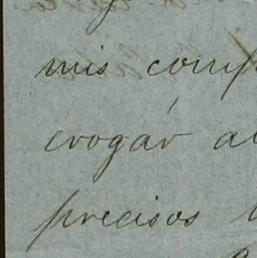 mis comp
erogár a
precisos